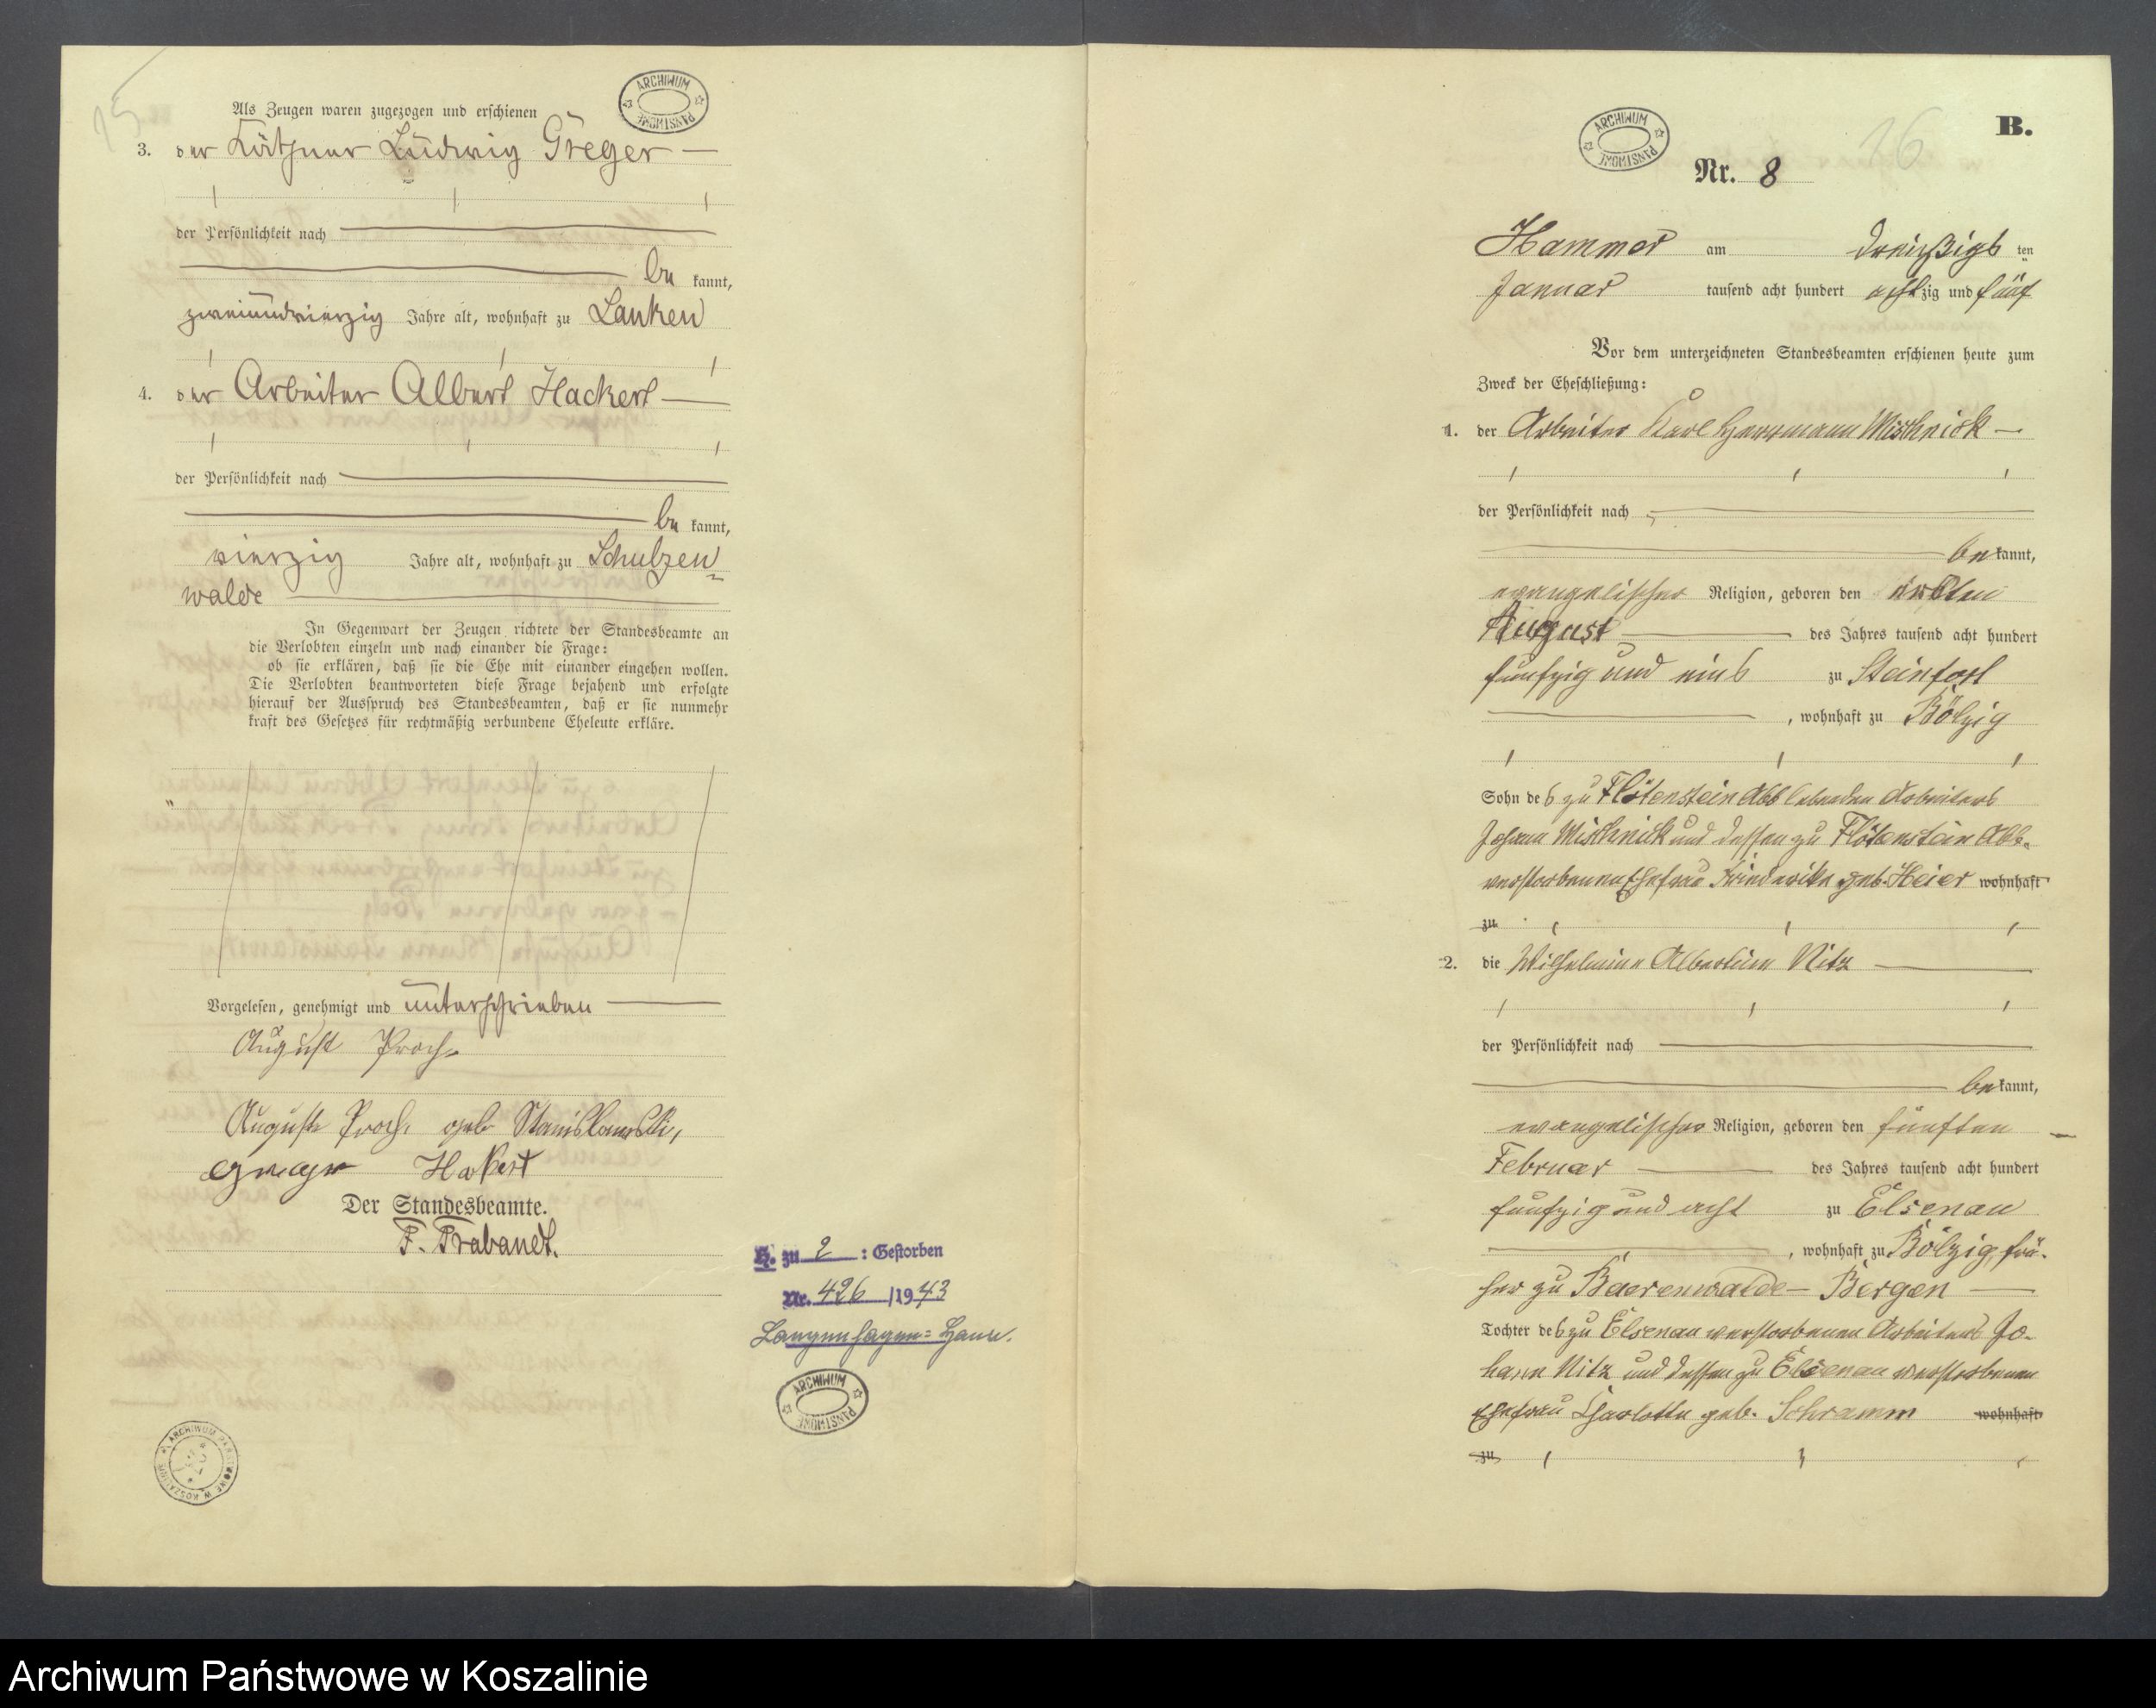 Als Zeugen waren zugezogen und erschienen
3. der Käthner Ludwig Greger
der Persönlichkeit nach
be kannt,
zweiundvierzig Jahre alt, wohnhaft zu Lanken
4. der Arbeiter Albert Hackert
der Persönlichkeit nach
be kannt,
vierzig Jahre alt, wohnhaft zu Schulzen
walde
In Gegenwart der Zeugen richtete der Standesbeamte an
die Verlobten einzeln und nach einander die Frage:
ob sie erklären, daß sie die Ehe mit einander eingehen wollen.
Die Verlobten beantworteten diese Frage bejahend und erfolgte
hierauf der Ausspruch des Standesbeamten, daß er sie nunmehr
kraft des Gesetzes für rechtmäßig verbundene Eheleute erkläre.
Vorgelesen, genehmigt und unterschrieben
August Proch.
Auguste Proch. geb Stanislawski,
Greger Hakert
Der Standesbeamte.
F. Brabandt.
H. zu 2 : Gestorben
Nr. 426 /1943
Langenhagen=Hann.
ARCHIWUM PAŃSTWOWE
ARCHIWUM PAŃSTWOWE
ARCHIWUM PAŃSTWOWE W KOSZALINIE
ARCHIWUM PAŃSTWOWE
16
B.
Nr. 8
Hammer am dreißigs ten
Januar tausend acht hundert acht zig und fünf
Vor dem unterzeichneten Standesbeamten erschienen heute zum
Zweck der Eheschließung:
1. der Arbeiter Karl Herrmann Misthnick
der Persönlichkeit nach
be kannt,
evangelischer Religion, geboren den ersten
August des Jahres tausend acht hundert
funfzig und eins zu Steinforst
, wohnhaft zu Bölzig
Sohn des zu Flötenstein Abb lebenden Arbeiters
Johann Misthnick und dessen zu Flötenstein Abb.
verstorbenen Ehefrau Friederike geb. Heier wohnhaft
zu
2. die Wilhelmine Albertine Nitz
der Persönlichkeit nach
be kannt,
evangelischer Religion, geboren den fünften
Februar des Jahres tausend acht hundert
funfzig und acht zu Elsenau
, wohnhaft zu Bölzig, frü-
her zu Baerenwalde - Bergen
Tochter des zu Elsenau verstorbenen Arbeiters Jo-
hann Nitz und dessen zu Elsenau verstorbenen
Ehefrau Charlotte geb. Schramm wohnhaft
zu
Archiwum Państwowe w Koszalinie